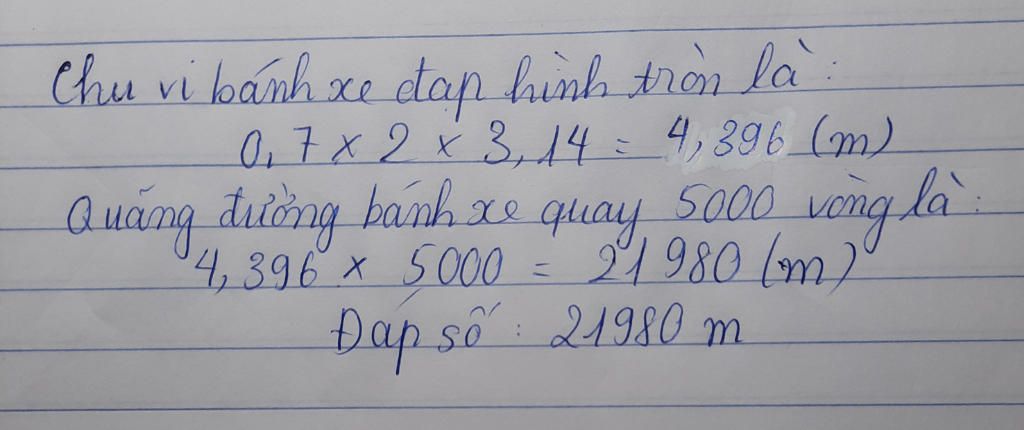 Chu vi bánh xe đạp hình tròn là:
0,7 x 2 x 3,14 = 4,396 (m)
Quãng đường bánh xe quay 5000 vòng là:
4,396 x 5000 = 21980 (m)
Đáp số: 21980 m